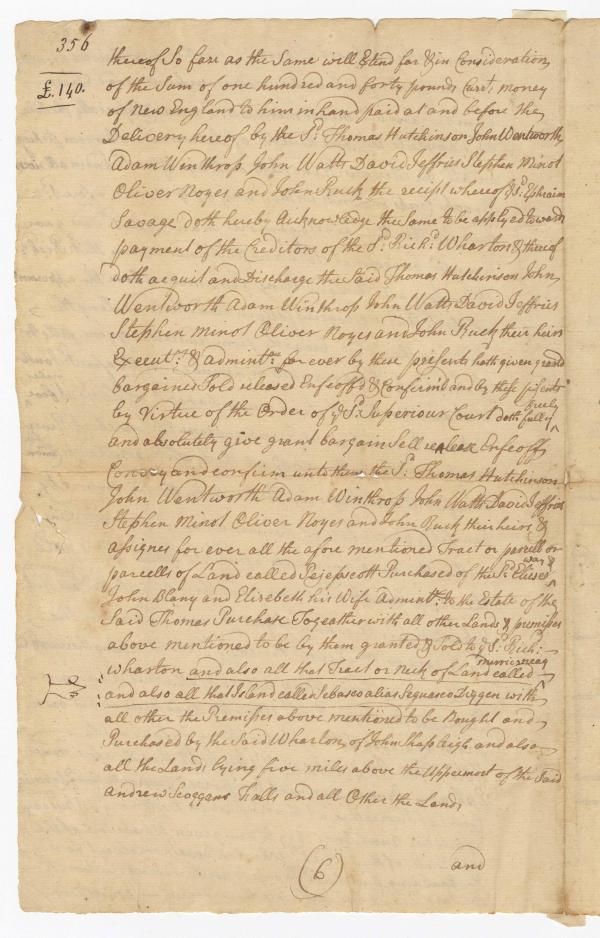 356
£.140.
thereof So farr as the Same will Extend for & in Consideration
of the Sum of one hundred and forty pounds Curr.t money
of New England to him in hand paid at and before the
Delivery hereof by the S.d Thomas Hutchinson John Wentworth
Adam Winthrop John Watts David Jeffries Stephen Minot
Oliver Noyes and John Ruck the recipt whereof y.e S.d Ephraim
Savage doth hereby Acknowledge the Same to be applyed towards
payment of the Creditors of the S.d Rich.d Wharton & thereof
doth acquit and Discharge the Said Thomas Hutchinson John
Wentworth Adam Winthrop John Watts David Jeffries
Stephen Minot Oliver Noyes and John Ruck their heirs
Execut.rs & admint.rs for ever by these presents hath given grant
bargained Sold released Enfeoff'd & Confirm'd and by these p.sents
by Virtue of the Order of y.e S.d Superiour Court doth fully freely
and absolutely give grant bargain Sell release Enfeoff
Convey and confirm unto them the S.d Thomas Hutchinson
John Wentworth Adam Winthrop John Watts David Jeffries
Stephen Minot Oliver Noyes and John Ruck their heirs &
assignes for ever all the afore mentioned Tract or parcell or
parcells of Land called Pejepscott Purchased of the S.d Eliser way &
John Blany and Elizebeth his Wife Admint.rs to the Estate of the
Said Thomas Purchase Togeather with all other Lands & premisses
above mentioned to be by them granted & Sold to y.e S.d Rich.d
Wharton and also all that Tract or Neck of Land called merriconeag
and also all that Island called Sebasco alias Sequasco Diggen with
all other the Premisses above mentioned to be Bought and
Purchased by the Said Wharton of John Shapleigh and also
all the Lands lying five miles above the Uppermost of the Said
Andrew Scoggans Falls and all Other the Lands
(6)
and